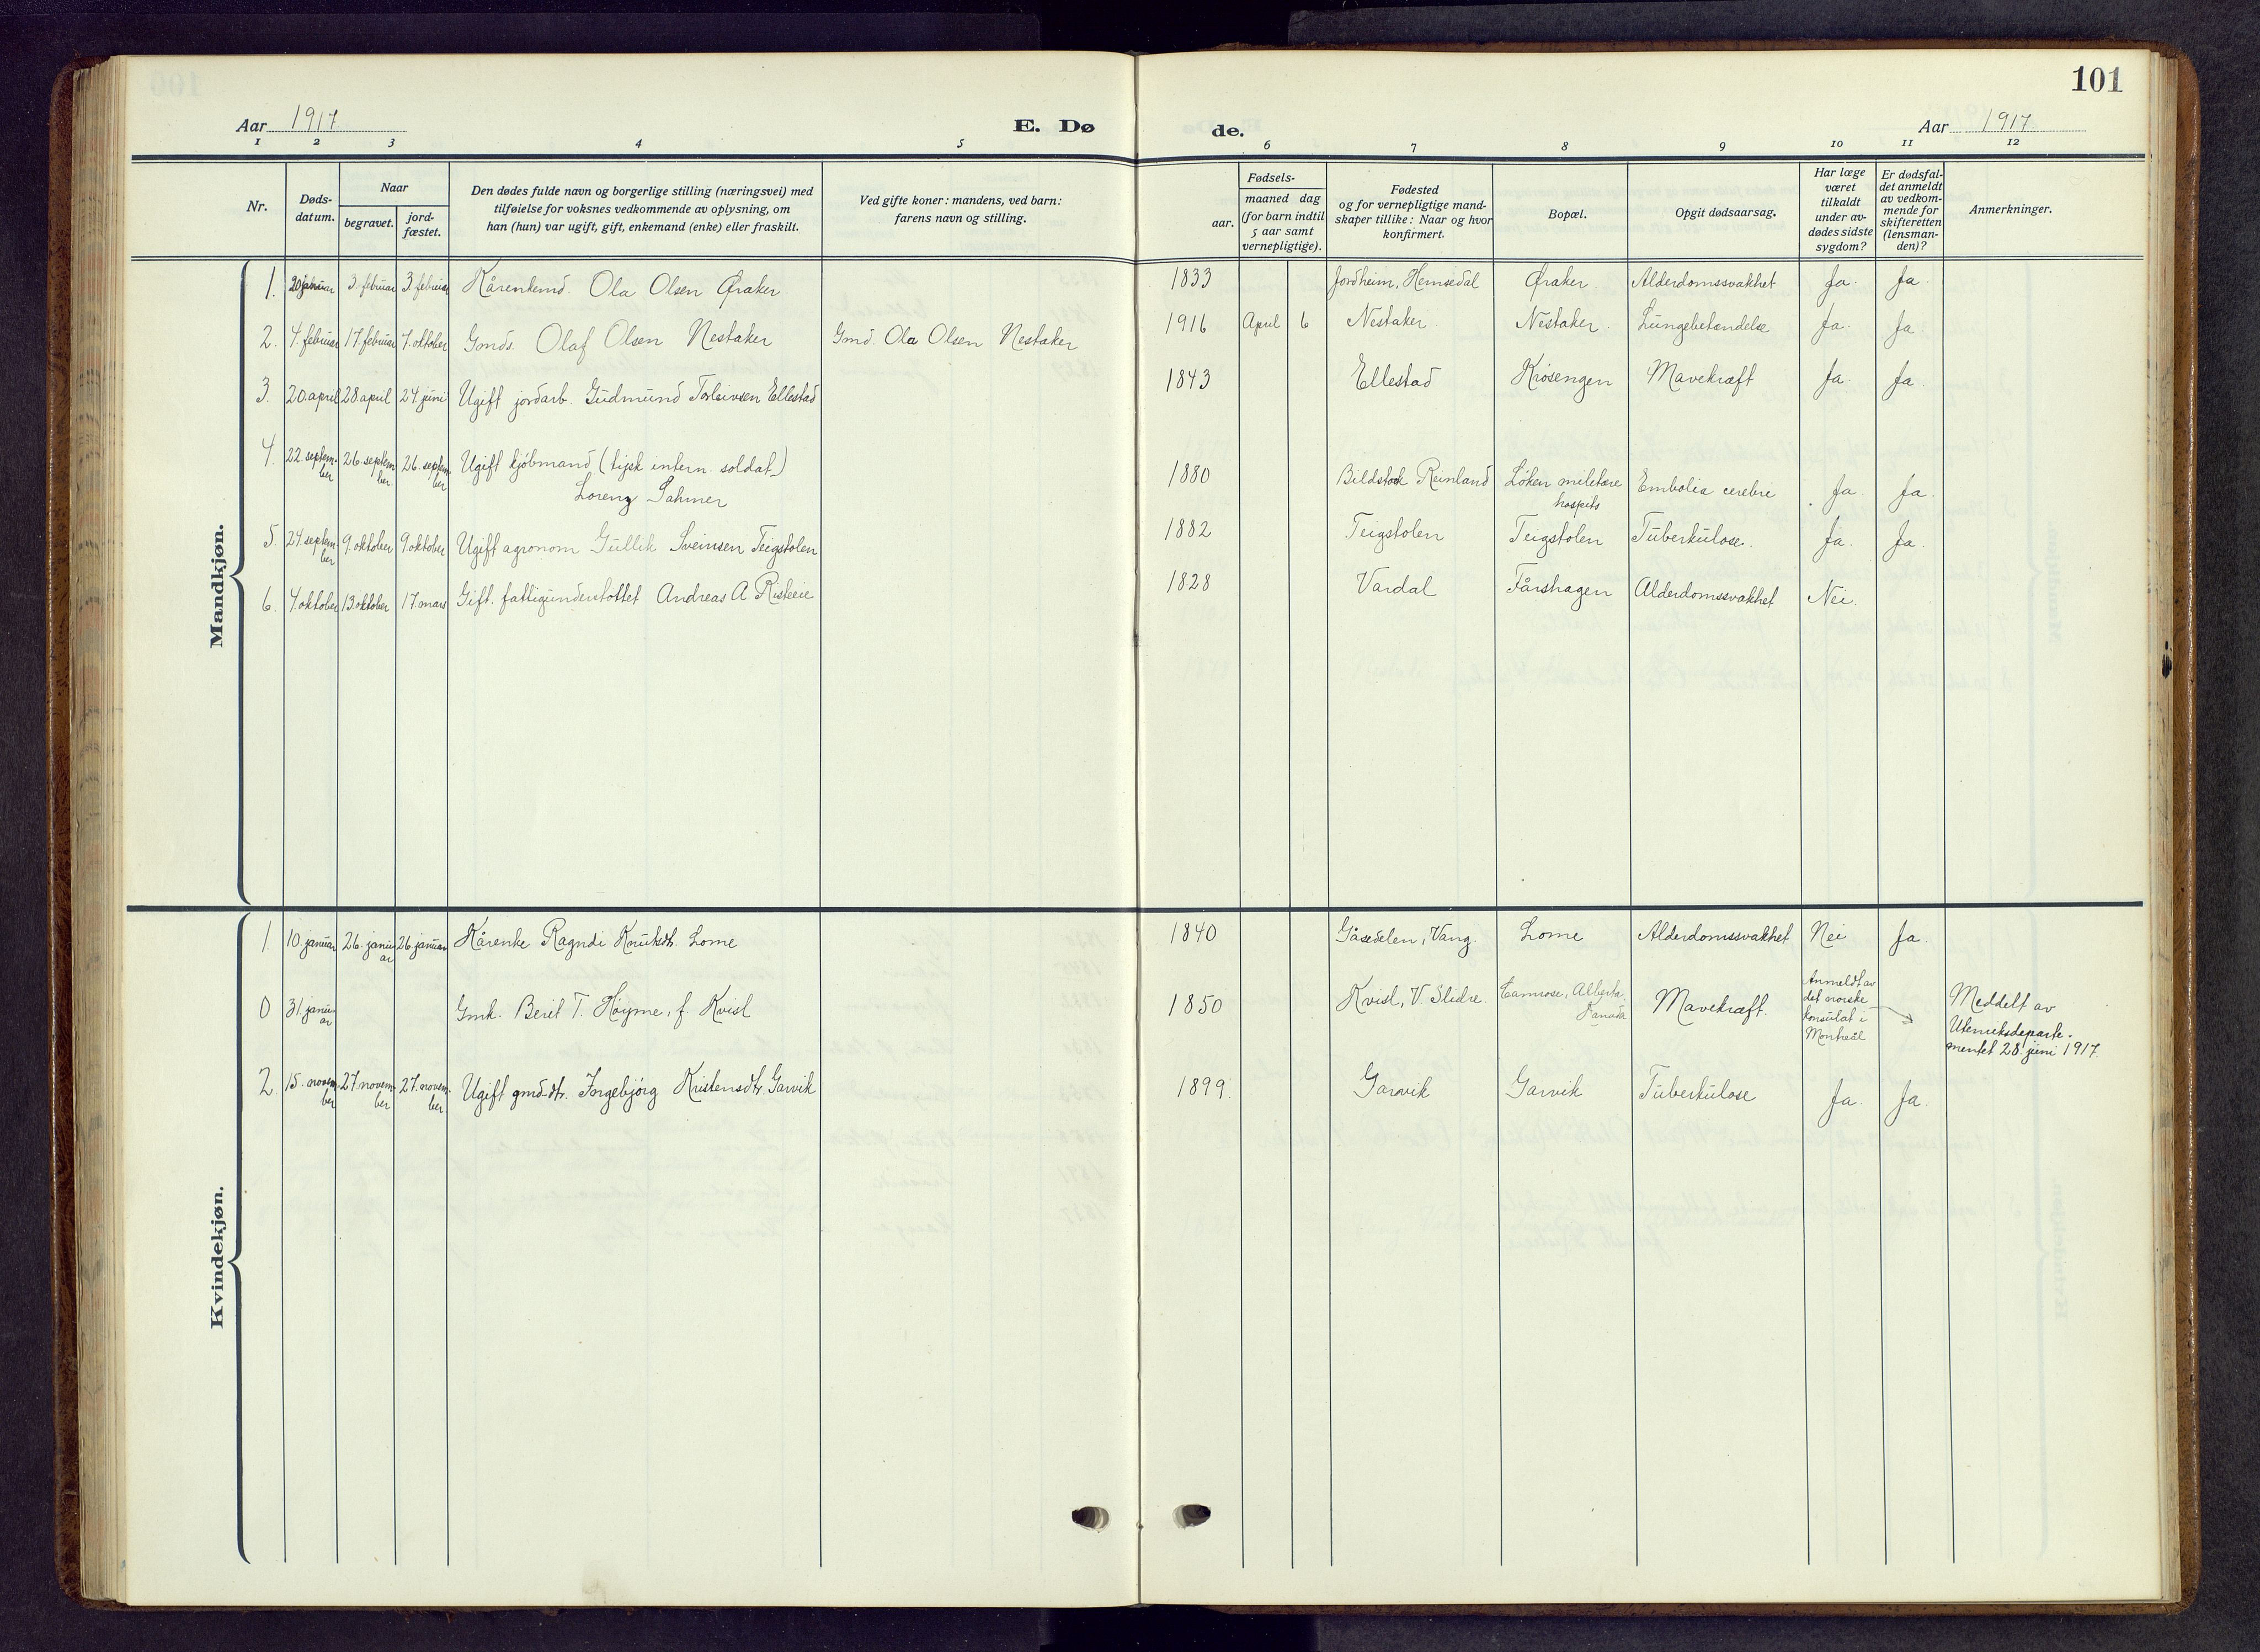 101
Aar 1917 E. Dø de. Aar 1917
1 2 3 4 5 6 7 8 9 10 11 12
Nr.
Døds-
datum.
Naar
begravet.
jord-
fæstet.
Den dødes fulde navn og borgerlige stilling (næringsvei) med
tilføielse for voksnes vedkommende av oplysning, om
han (hun) var ugift, gift, enkemand (enke) eller fraskilt.
Ved gifte koner: mandens, ved barn:
farens navn og stilling.
Fødsels-
aar.
maaned dag
(for barn indtil
5 aar samt
vernepligtige).
Fødested
og for vernepligtige mand-
skaper tillike: Naar og hvor
konfirmert.
Bopæl.
Opgit dødsaarsag.
Har læge
været
tilkaldt
under av-
dødes sidste
sygdom?
Er dødsfal-
det anmeldt
av vedkom-
mende for
skifteretten
(lensman-
den)?
Anmerkninger.
Mandkjøn.
1. 20 januar 3. februar 3. februar Kårenkemd. Ola Olsen Øraker 1833 Jordheim, Hemsedal Øraker Alderdomssvakhet Ja. Ja.
2. 4. februar 17. februar 7. oktober Gmds. Olaf Olsen Nestaker Gmd. Ola Olsen Nestaker 1916 April 6 Nestaker Nestaker Lungebetændelse Ja. Ja
3. 20. april 28. april 24. juni Ugift jordarb. Gudmund Torleivsen Ellestad 1843 Ellestad Krøsengen Mavekræft Ja. Ja.
4. 22. septem-
ber 26. septem-
ber 26. septem-
ber Ugift kjøbmand (tysk intern. soldat)
Lorenz Sahmer 1880 Bildstock Reinland Løken militære
hospits Embolia cerebri Ja. Ja.
5. 24. septem-
ber 9. oktober 9. oktober Ugift agronom Gullik Sveinsen Teigstolen 1882 Teigstolen Teigstolen Tuberkulose. Ja. Ja.
6. 4. oktober 13. oktober 17. mars Gift. fattigunderstøttet Andreas A Risteeie 1828 Vardal Fårshagen Alderdomssvakhet Nei.
Kvindekjøn.
1 10. januar 26. janu-
ar 26. januar Kårenke Ragndi Knutsdt. Lome 1840 Gåsedelen, Vang. Lome Alderdomssvakhet Nei Ja.
0 31. janu-
ar Gmk. Berit T. Høyme, f. Kvisl 1850 Kvisl, V Slidre. Camrose, Alberta,
Kanada Mavekræft. Anmeldt av
det norske
konsulat i
Montreal Meddelt av
Utenriksdeparte-
mentet 28. juni 1917.
2. 15. novem-
ber 27. novem-
ber 27. novem-
ber. Ugift gmd-dt. Ingebjørg Kristensdtr. Garvik 1899. Garvik Garvik Tuberkulose Ja. Ja.